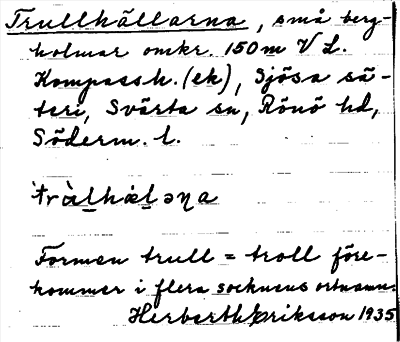 Trullhällarna, små berg-
holmar omkr. 150 m V L.
Kompassh. (ek), Sjösa sä-
teri, Svärta sn, Rönö hd,
Söderm. l.
Formen trull = troll före-
kommer i flera socknens ortnamn.
Herbert Eriksson 1935